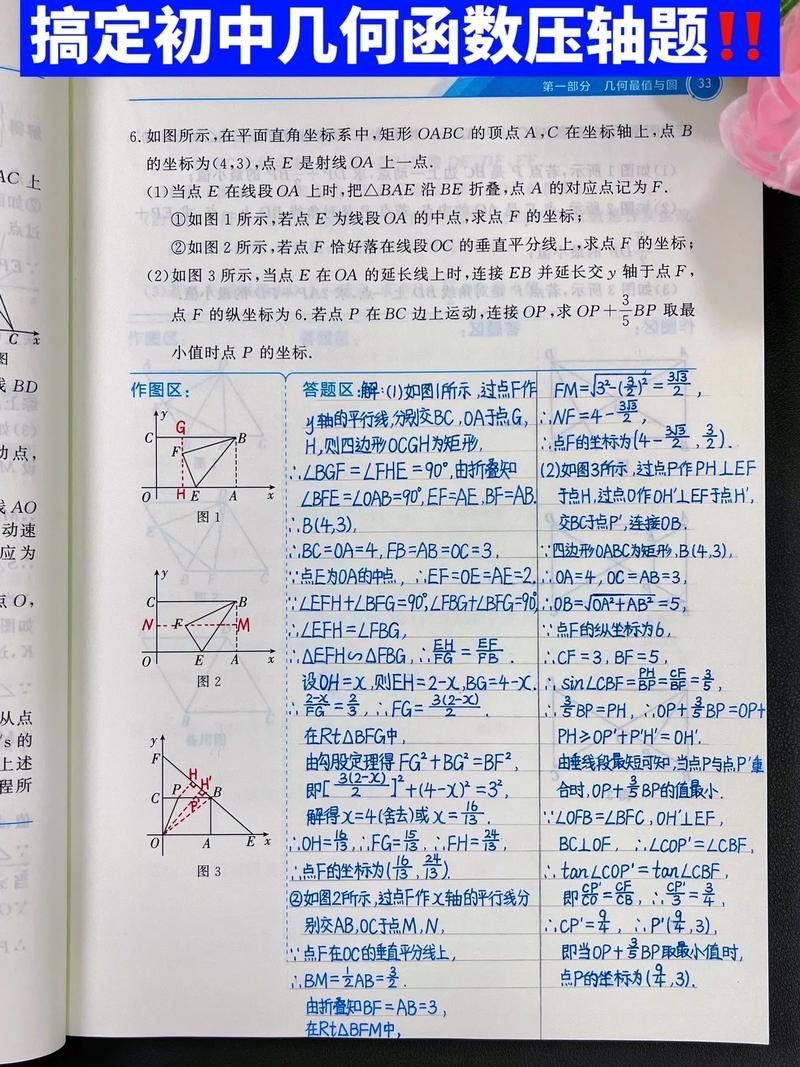 搞定初中几何函数压轴题‼️
第一部分 几何最值与圆 33
6.如图所示,在平面直角坐标系中,矩形 OABC 的顶点 A,C 在坐标轴上,点 B
的坐标为(4,3),点 E 是射线 OA 上一点.
(1)当点 E 在线段 OA 上时,把△BAE 沿 BE 折叠,点 A 的对应点记为 F.
①如图 1 所示,若点 E 为线段 OA 的中点,求点 F 的坐标;
②如图 2 所示,若点 F 恰好落在线段 OC 的垂直平分线上,求点 F 的坐标;
(2)如图 3 所示,当点 E 在 OA 的延长线上时,连接 EB 并延长交 y 轴于点 F,
点 F 的纵坐标为 6.若点 P 在 BC 边上运动,连接 OP,求 OP+3/5 BP 取最
小值时点 P 的坐标.
作图区:
y
C G B
F
O H E A x
图 1
y
C B
N F M
O E A x
图 2
y
F
H
P H'
C P' B
O A E x
图 3
答题区:解:(1)如图1所示,过点F作
y轴的平行线,分别交BC,OA于点G,
H,则四边形OCGH为矩形,
∴∠BGF=∠FHE=90°,由折叠知
∠BFE=∠OAB=90°,EF=AE,BF=AB.
∵B(4,3),
∴BC=OA=4,FB=AB=OC=3,
∵点E为OA的中点,∴EF=OE=AE=2.
∵∠EFH+∠BFG=90°,∠FBG+∠BFG=90°,
∴∠EFH=∠FBG,
∴△EFH∽△FBG,∴EH/FG=EF/FB.
设OH=x,则EH=2-x,BG=4-x.
∴(2-x)/FG=2/3,∴FG=3(2-x)/2.
在Rt△BFG中,
由勾股定理得FG²+BG²=BF²,
即[3(2-x)/2]²+(4-x)²=3²,
解得x=4(舍去)或x=16/13.
∴OH=16/13,FG=15/13,∴FH=24/13,
∴点F的坐标为(16/13,24/13).
②如图2所示,过点F作x轴的平行线分
别交AB,OC于点M,N,
∵点F在OC的垂直平分线上,
∴BM=1/2AB=3/2.
由折叠知BF=AB=3,
在Rt△BFM中,
FM=√(3²-(3/2)²)=3√3/2,
∴NF=4-3√3/2,
∴点F的坐标为(4-3√3/2,3/2).
(2)如图3所示,过点P作PH⊥EF
于点H,过点O作OH'⊥EF于点H',
交BC于点P',连接OB.
∵四边形OABC为矩形,B(4,3),
∴OA=4,OC=AB=3,
∴OB=√(OA²+AB²)=5,
∵点F的纵坐标为6,
∴CF=3,BF=5,
∴sin∠CBF=PH/BP=CF/BF=3/5,
∴3/5BP=PH,∴OP+3/5BP=OP+
PH≥OP'+P'H'=OH'.
由垂线段最短可知,当点P与点P'重
合时,OP+3/5BP的值最小.
∵∠OFB=∠BFC,OH'⊥EF,
BC⊥OF,∴∠COP'=∠CBF,
∴tan∠COP'=tan∠CBF,
即CP'/CO=CF/CB,∴CP'/3=3/4,
∴CP'=9/4,∴P'(9/4,3),
即当OP+3/5BP取最小值时,
点P的坐标为(9/4,3).